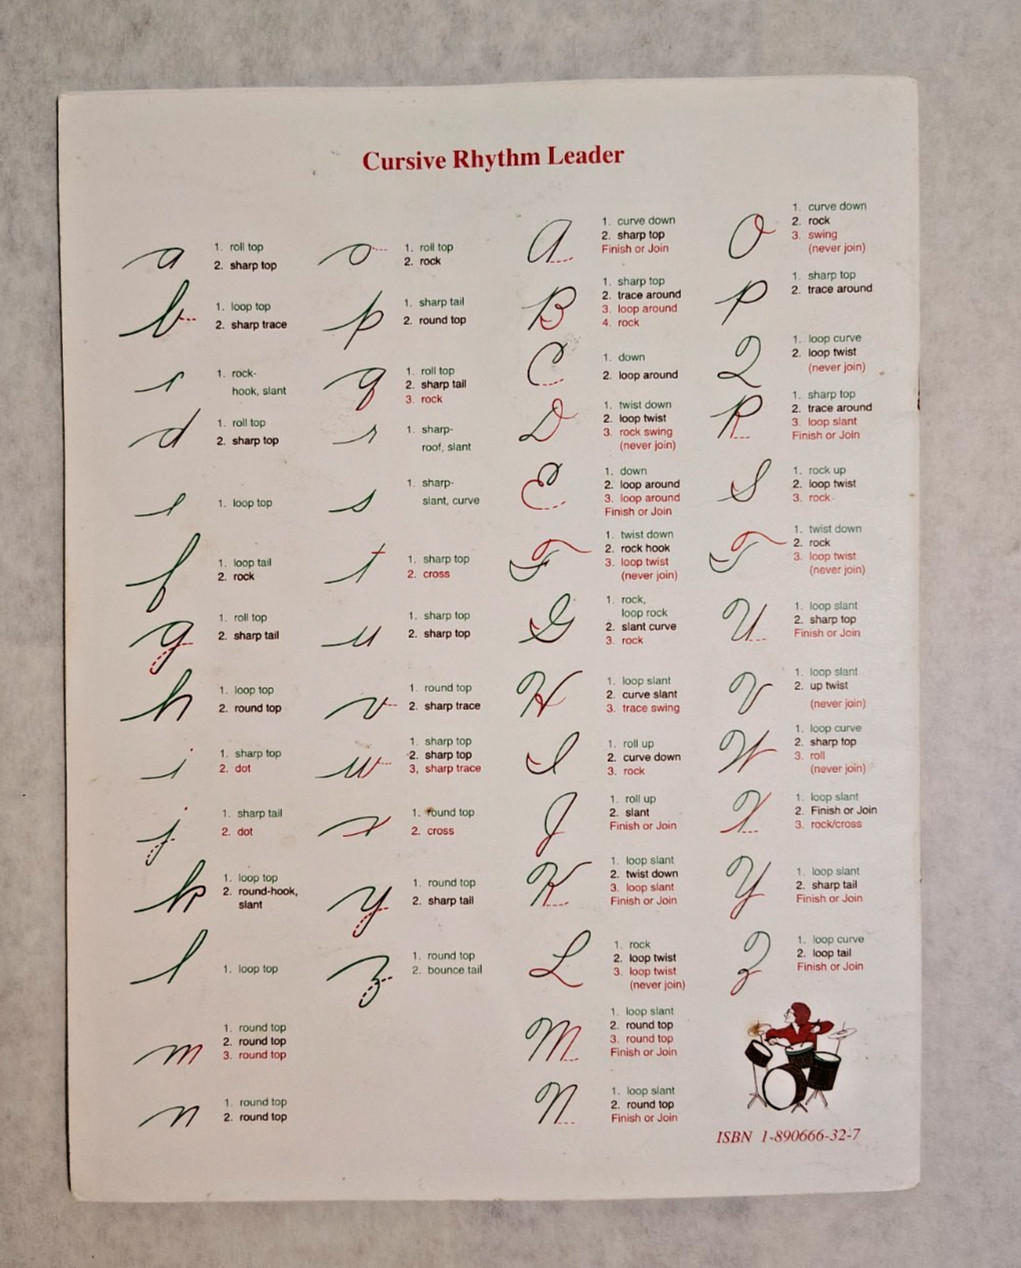 Cursive Rhythm Leader
a
1. roll top
2. sharp top
b
1. loop top
2. sharp trace
c
1. rock-
hook, slant
d
1. roll top
2. sharp top
e
1. loop top
f
1. loop tail
2. rock
g
1. roll top
2. sharp tail
h
1. loop top
2. round top
i
1. sharp top
2. dot
j
1. sharp tail
2. dot
k
1. loop top
2. round-hook,
slant
l
1. loop top
m
1. round top
2. round top
3. round top
n
1. round top
2. round top
o
1. roll top
2. rock
p
1. sharp tail
2. round top
q
1. roll top
2. sharp tail
3. rock
r
1. sharp-
roof, slant
s
1. sharp-
slant, curve
t
1. sharp top
2. cross
u
1. sharp top
2. sharp top
v
1. round top
2. sharp trace
w
1. sharp top
2. sharp top
3, sharp trace
x
1. round top
2. cross
y
1. round top
2. sharp tail
z
1. round top
2. bounce tail
A
1. curve down
2. sharp top
Finish or Join
B
1. sharp top
2. trace around
3. loop around
4. rock
C
1. down
2. loop around
D
1. twist down
2. loop twist
3. rock swing
(never join)
E
1. down
2. loop around
3. loop around
Finish or Join
F
1. twist down
2. rock hook
3. loop twist
(never join)
G
1. rock,
loop rock
2. slant curve
3. rock
H
1. loop slant
2. curve slant
3. trace swing
I
1. roll up
2. curve down
3. rock
J
1. roll up
2. slant
Finish or Join
K
1. loop slant
2. twist down
3. loop slant
Finish or Join
L
1. rock
2. loop twist
3. loop twist
(never join)
M
1. loop slant
2. round top
3. round top
Finish or Join
N
1. loop slant
2. round top
Finish or Join
O
1. curve down
2. rock
3. swing
(never join)
P
1. sharp top
2. trace around
Q
1. loop curve
2. loop twist
(never join)
R
1. sharp top
2. trace around
3. loop slant
Finish or Join
S
1. rock up
2. loop twist
3. rock
T
1. twist down
2. rock
3. loop twist
(never join)
U
1. loop slant
2. sharp top
Finish or Join
V
1. loop slant
2. up twist
(never join)
W
1. loop curve
2. sharp top
3. roll
(never join)
X
1. loop slant
2. Finish or Join
3. rock/cross
Y
1. loop slant
2. sharp tail
Finish or Join
Z
1. loop curve
2. loop tail
Finish or Join
ISBN 1-890666-32-7